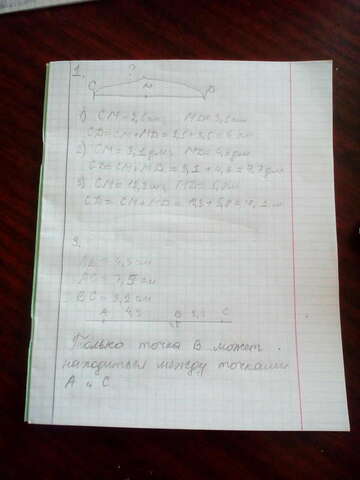 1.
?
C M D
1) CM=2,5см, MD=3,5см
CD=CM+MD=2,5+3,5=6 см
2) CM=3,1дм, MD=4,6дм
CD=CM+MD=3,1+4,6=7,7дм
3) CM=12,3м,
CD=CM+MD=
2.
AB=4,3см
AC=7,5см
BC=3,2см
A 4,3 B 3,2 C
7,5
Только точка B может
находиться между точками
A и C